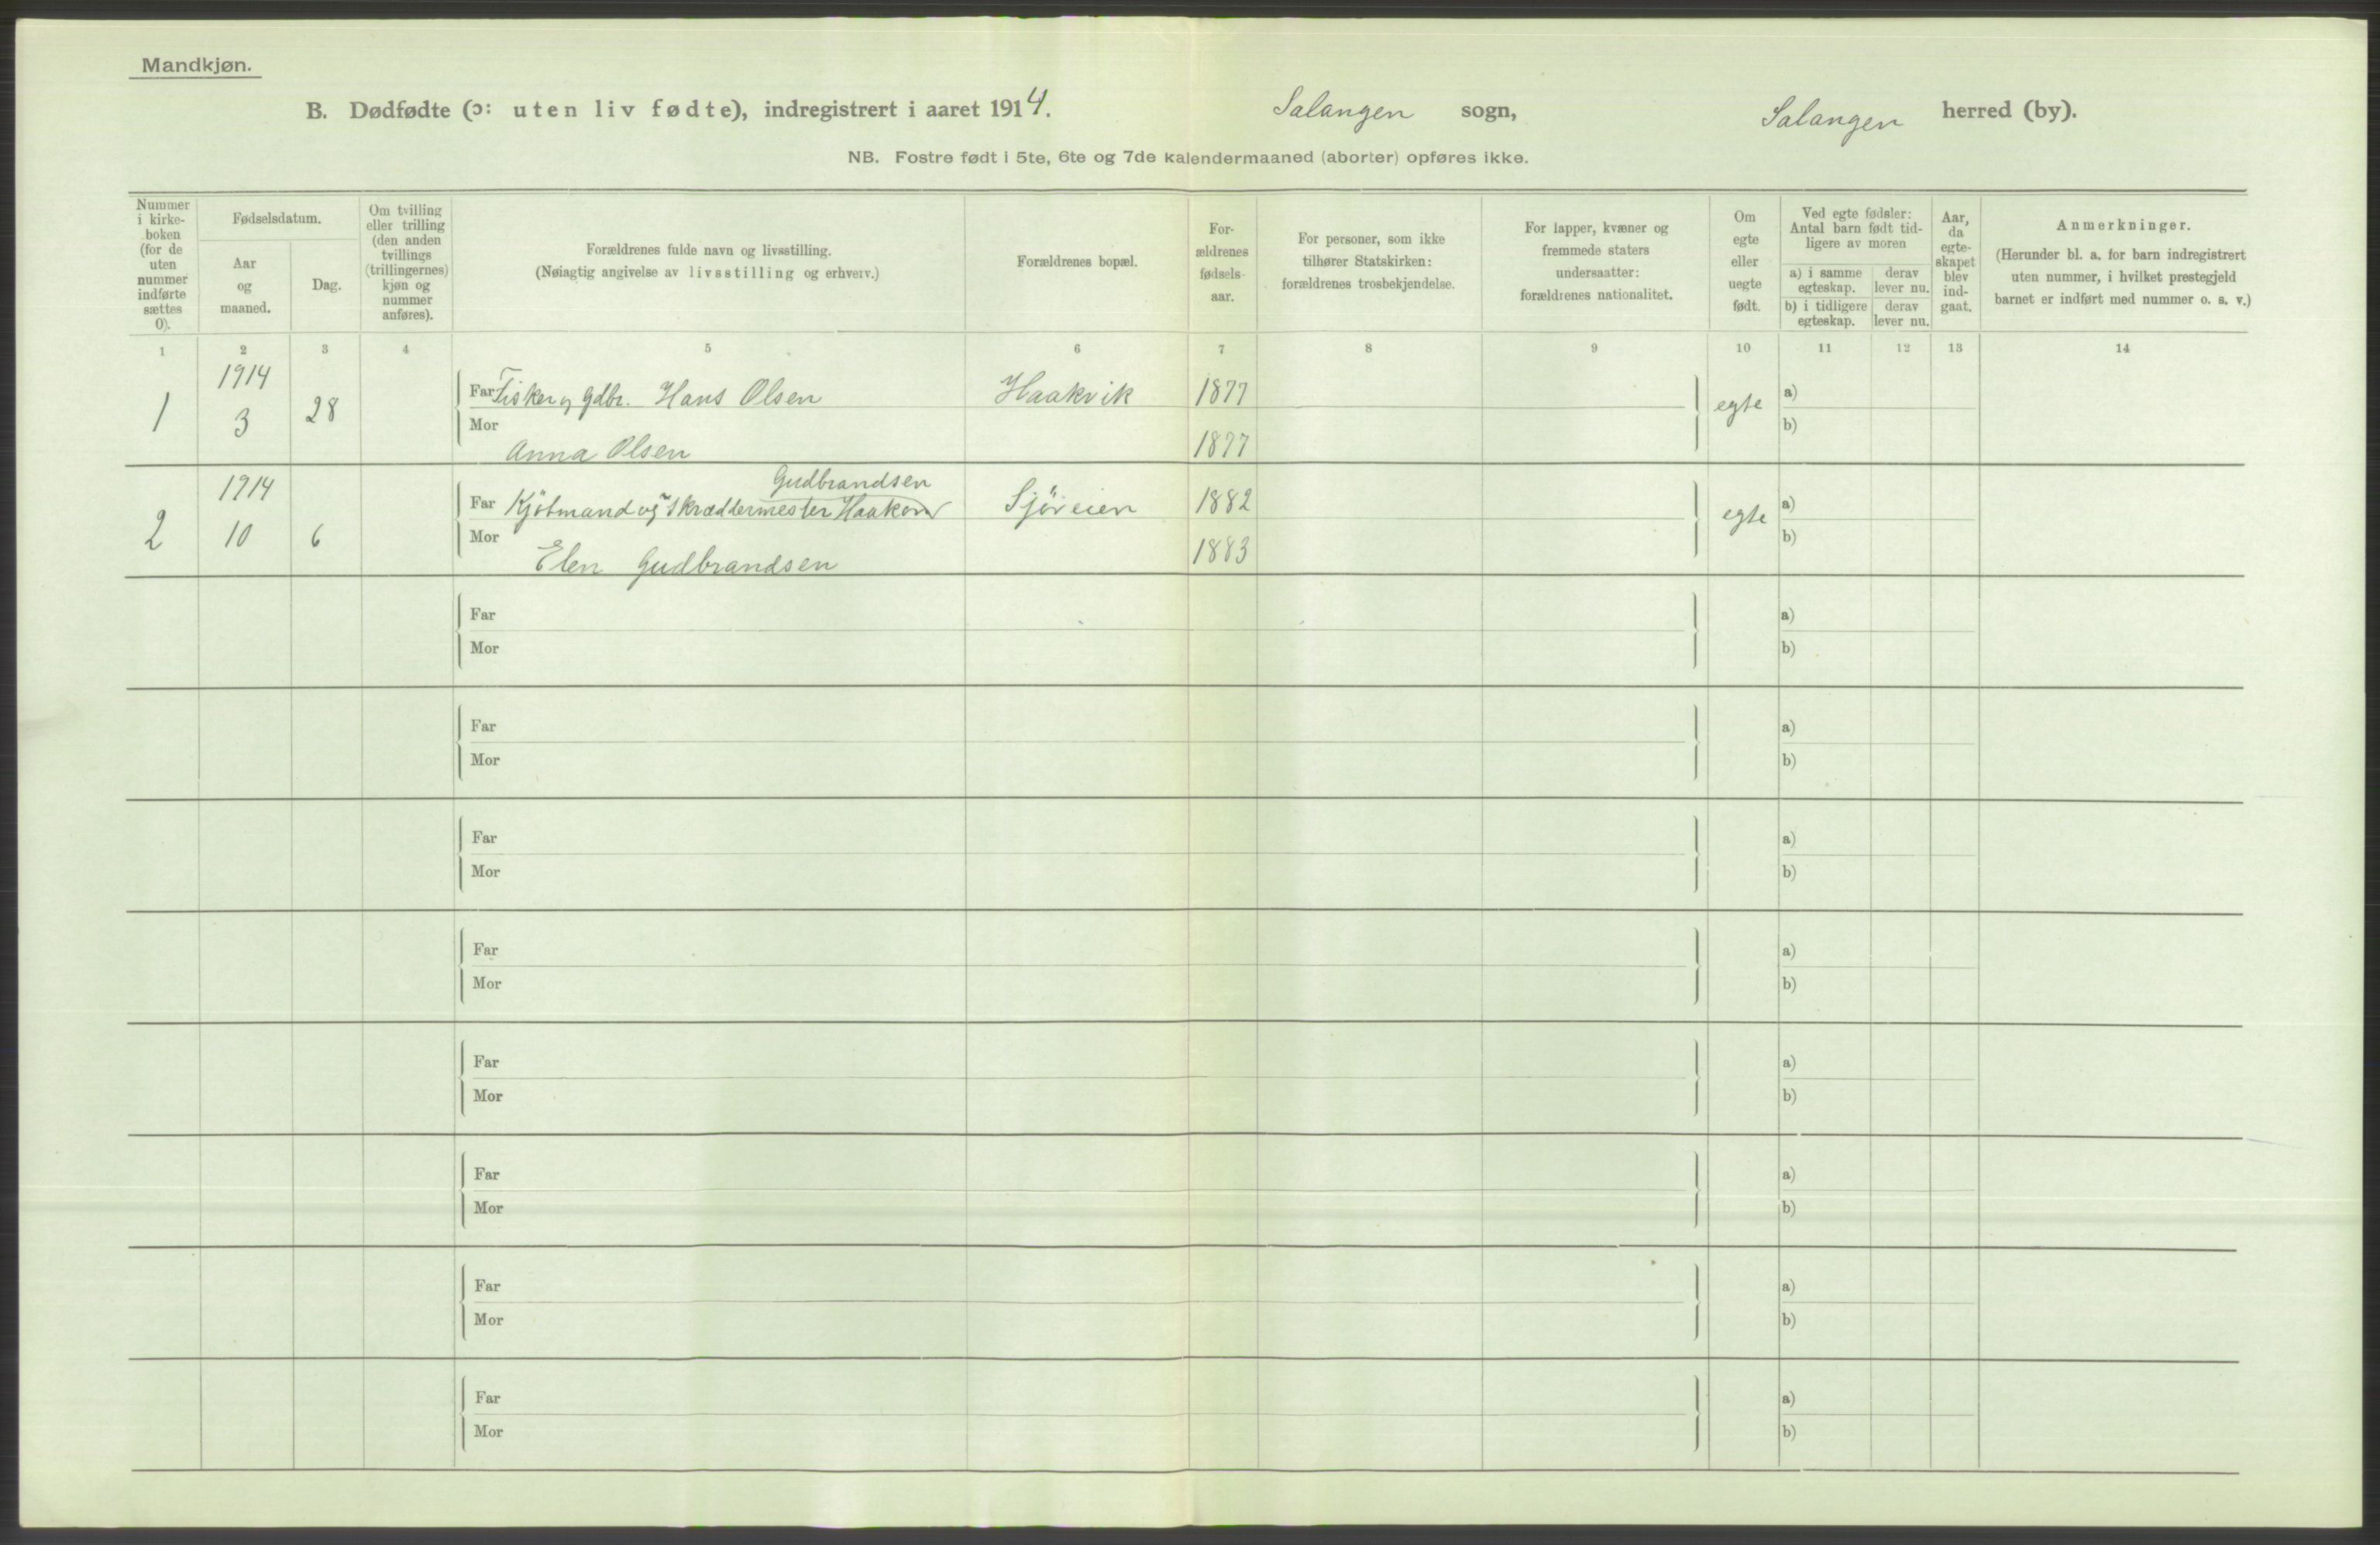 Mandkjøn.
B. Dødfødte (ɔ: uten liv fødte), indregistrert i aaret 1914. Salangen sogn, Salangen herred (by).
NB. Fostre født i 5te, 6te og 7de kalendermaaned (aborter) opføres ikke.
Nummer i kirke-boken (for de uten nummer indførte sættes 0).
Fødselsdatum.
Aar og maaned.
Dag.
Om tvilling eller trilling (den anden tvillings (trillingernes) kjøn og nummer anføres).
Forældrenes fulde navn og livsstilling.
(Nøiagtig angivelse av livsstilling og erhverv.)
Forældrenes bopæl.
For-ældrenes fødsels-aar.
For personer, som ikke tilhører Statskirken: forældrenes trosbekjendelse.
For lapper, kvæner og fremmede staters undersaatter: forældrenes nationalitet.
Om egte eller uegte født.
Ved egte fødsler: Antal barn født tid-ligere av moren
a) i samme egteskap.
derav lever nu.
b) i tidligere egteskap.
derav lever nu.
Aar, da egte-skapet blev ind-gaat.
Anmerkninger.
(Herunder bl. a. for barn indregistrert uten nummer, i hvilket prestegjeld barnet er indført med nummer o. s. v.)
1 2 3 4 5 6 7 8 9 10 11 12 13 14
1914
1 3 28 Far Fisker og gdbr. Hans Olsen Haakvik 1877 egte a)
Mor Anna Olsen 1877 b)
1914 Gudbrandsen
2 10 6 Far Kjøtmand og Skræddermester Haakon Sjøveien 1882 egte a)
Mor Elen Gudbrandsen 1883 b)
Far a)
Mor b)
Far a)
Mor b)
Far a)
Mor b)
Far a)
Mor b)
Far a)
Mor b)
Far a)
Mor b)
Far a)
Mor b)
Far a)
Mor b)